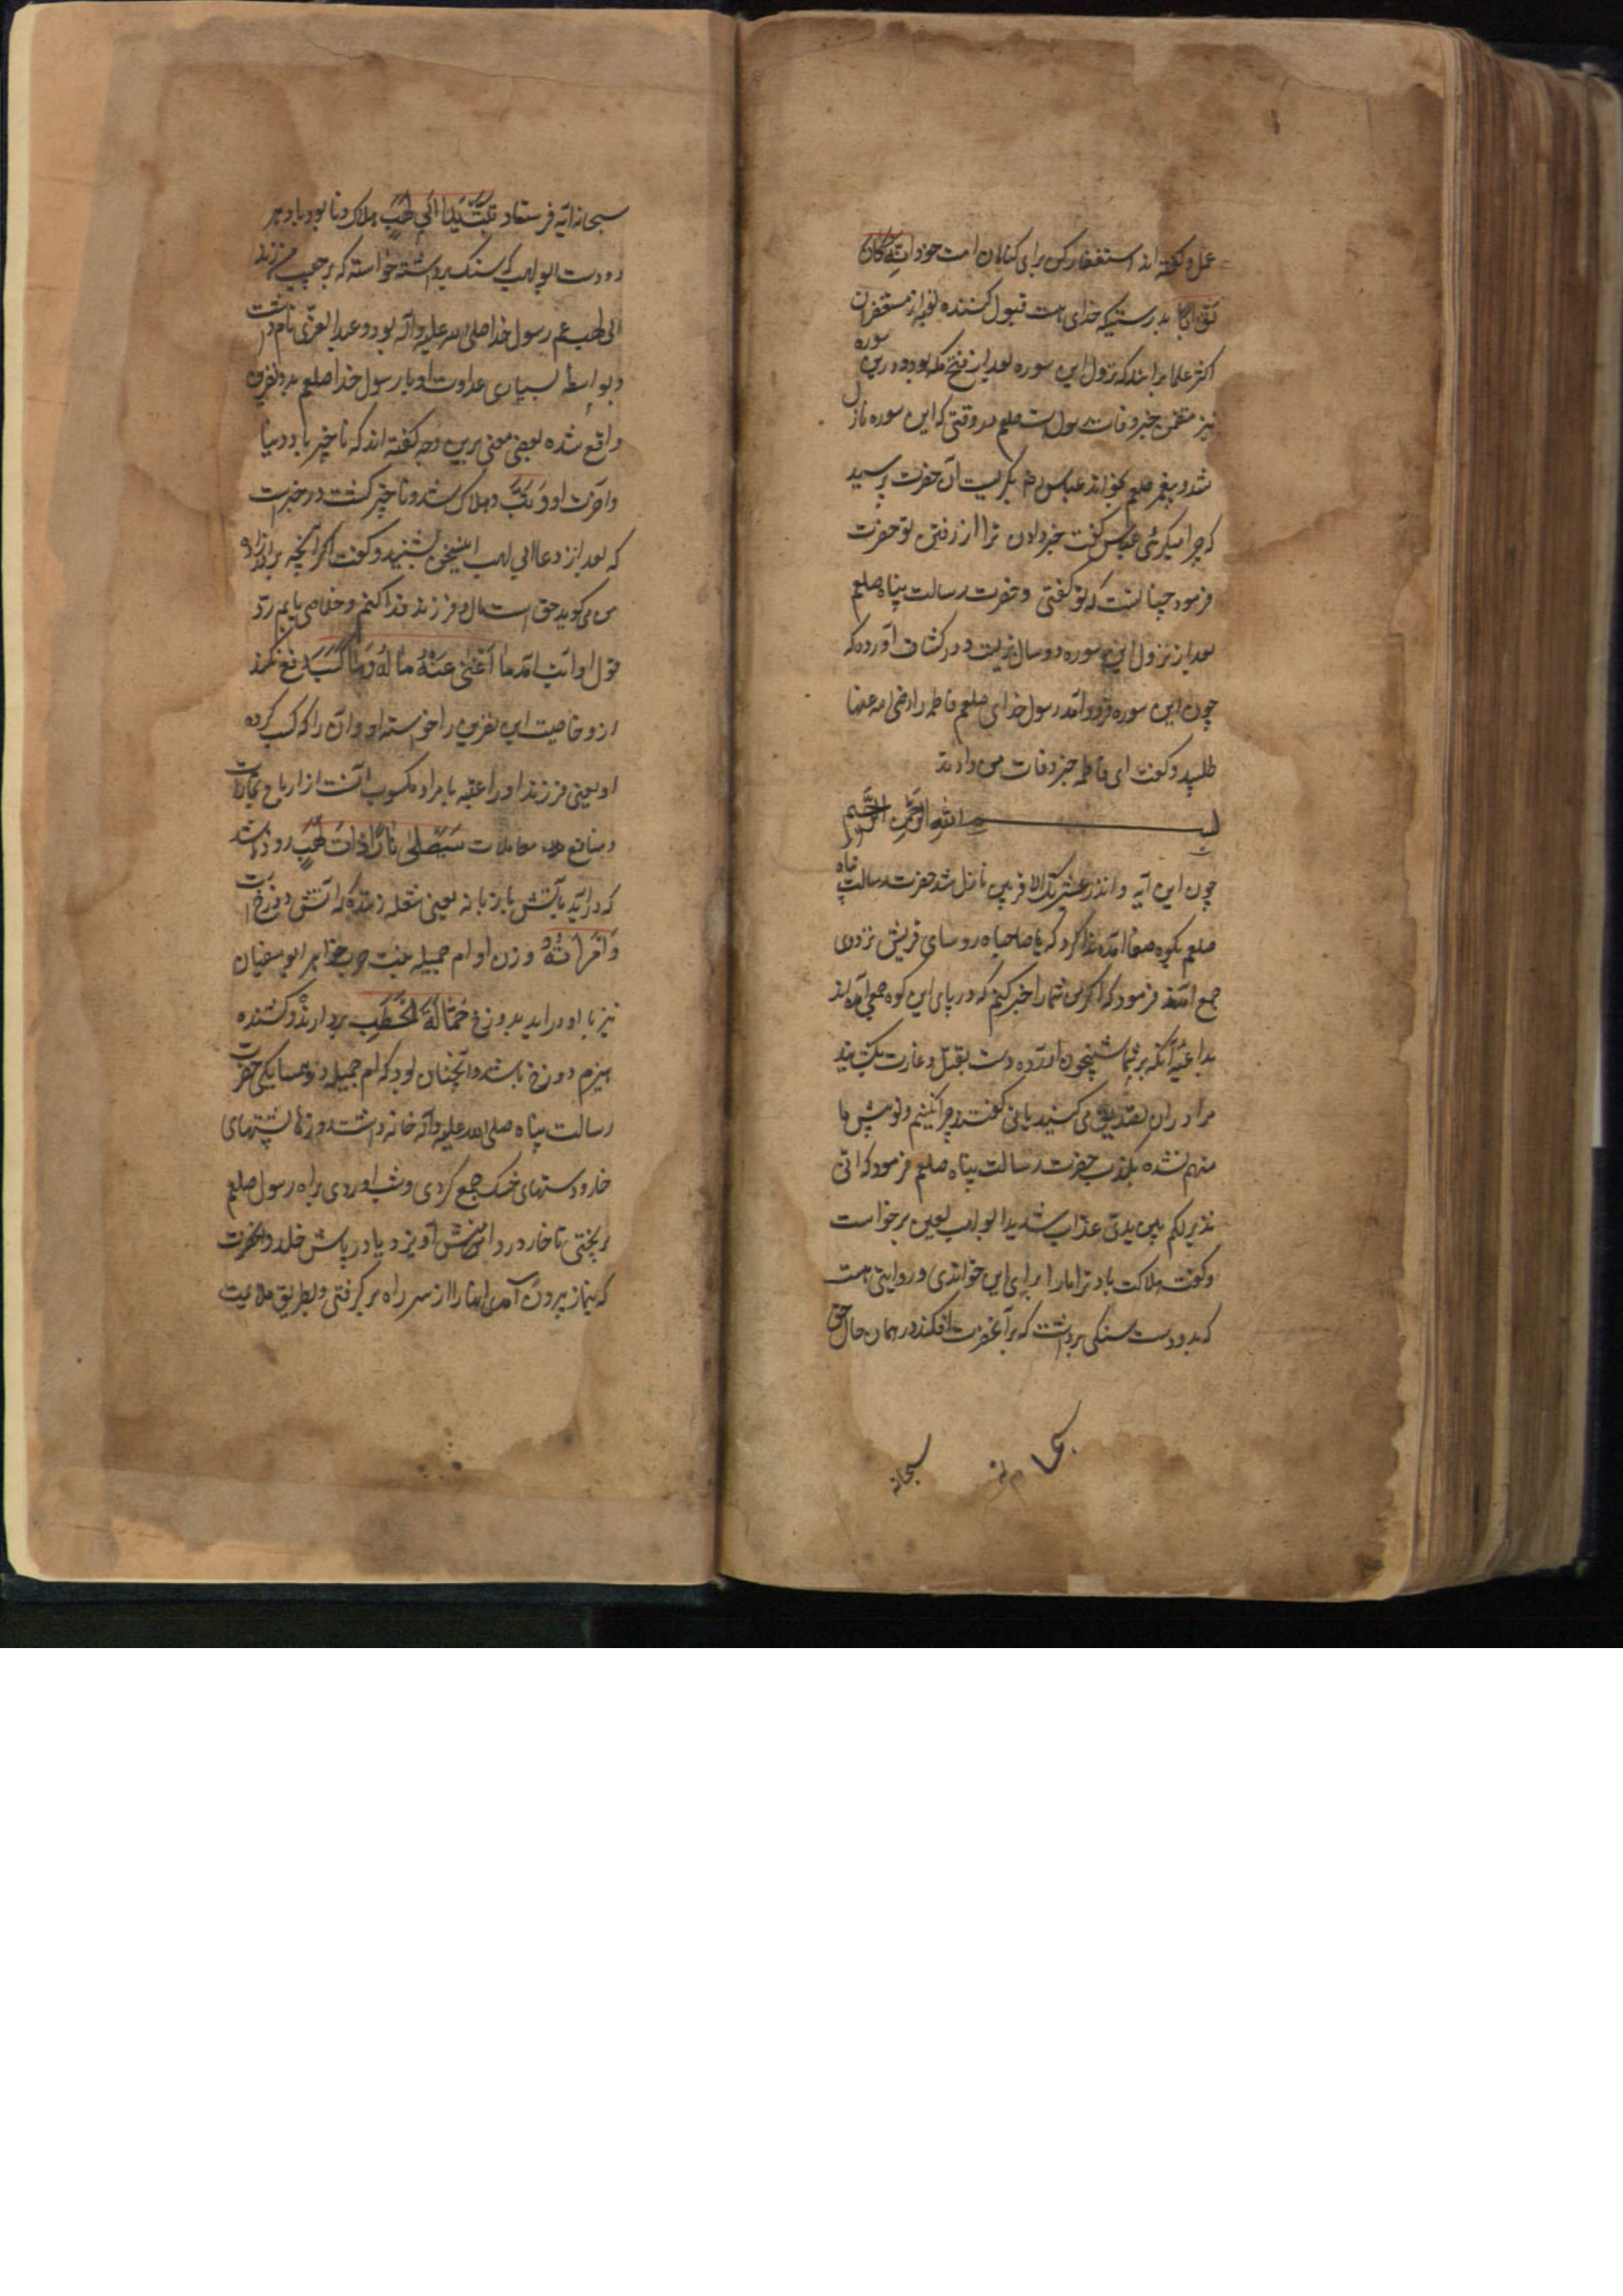 عمل و گفته اند استغفار کن برای کناهان امت خود اِنَّهُ کَانَ
تَوَّابًا بدرستیکه خدای هست قبول کننده توبه از مستغفران
اکثر علما برانند که نزول این سوره بعد از فتح مکه بود و درین سوره
نیز متضمن خبر وفات رسول است صلعم در وقتی که این سوره نازل
شد و پیغمبر صلعم بخواند عباس رض بکریست آن حضرت پرسید
که چرا میکریی عباس گفت خبر دادن ترا از رفتن تو حضرت
فرمود چنانست که تو کفتی و حضرت رسالت پناه صلعم
بعد از نزول این سوره دو سال بزیست و در کشاف آورده که
چون این سوره فرود آمد رسول خدای صلعم فاطمه را رضی الله عنها
طلبید و کفت ای فاطمه خبر وفات من دادند
بسم الله الرحمن الرحیم
چون این آیه و انذر عشیرتک الاقربین نازل شد حضرت رسالت پناه
صلعم بکوه صفا آمده ندا کرد که یا صاحباه روسای قریش نزد وی
جمع آمدند فرمود که اکر من شما را خبر کنم که در پای این کوه جمعی آمده اند
بداعیه آنکه بر شما شبیخون آورده دست بقتل و غارت بکشایند
مرا در ان تصدیق می کنید یا نی کفتند چرا نکنیم و تو پیش ما
متهم نشده بکذب حضرت رسالت پناه صلعم فرمود که انی
نذیر لکم بین یدی عذاب شدید ابولهب لعین برخواست
و کفت هلاکت باد ترا ما را برای این خواندی و روایتی هست
که بدو دست سنکی برداشت که بر آنحضرت افکند در همان حال حق
سبحانه
سبحانه آیه فرستاد تَبَّتْ یَدَا اَبِی لَهَبٍ هلاک و نابود باد هر
دو دست ابولهب که سنک برداشته خواسته که بر حبیب من زند
ابی لهب عم رسول خدا صلی الله علیه وآله بود و عبد العزی نام داشت
و بواسطه بسیاری عداوت او با رسول خدا صلعم بدو نفرین
واقع شده بعضی معنی برین وجه کفته اند که ناچیز باد دنیا
و آخرت او وَتَبَّ و هلاک شد و ناچیز کشت در خبرست
که بعد از دعا ابی لهب این سخن بشنید و کفت اکر آنچه برادرزاده
من می کوید حق است مال و فرزند فدا کنم و خلاصی یابم رد
قول او آیت آمد مَا اَغْنٰی عَنْهُ مَالُهُ وَمَا کَسَبَ دفع نکرد
ازو خاصیت این نفرین را خواسته او و آن را که کسب کرده
او یعنی فرزند او را عقبه یا مراد مکسوب آنست از ارباح تجارات
و منافع معاملات سَیَصْلٰی نَارًا ذَاتَ لَهَبٍ زود باشد
که درآید بآتش با زبانه یعنی شعله زننده که آتش دوزخ است
وَامْرَاَتُهُ و زن او ام جمیله بنت حرب خواهر ابو سفیان
نیز با او دراید بدوزخ حَمَّالَةَ الْحَطَبِ بردارنده و کشنده
هیزم دوزخ باشد و آنچنان بود که ام جمیله در همسایکی حضرت
رسالت پناه صلی الله علیه وآله خانه داشت و روزها پشتهای
خار و دستهای خسک جمع کردی و شب آوردی براه رسول صلعم
بریختی تا خار در دامنش آویزد یا در پایش خلد و آنحضرت
که بنماز بیرون آمدی اینها را از سر راه برکرفتی و بطریق ملایمت